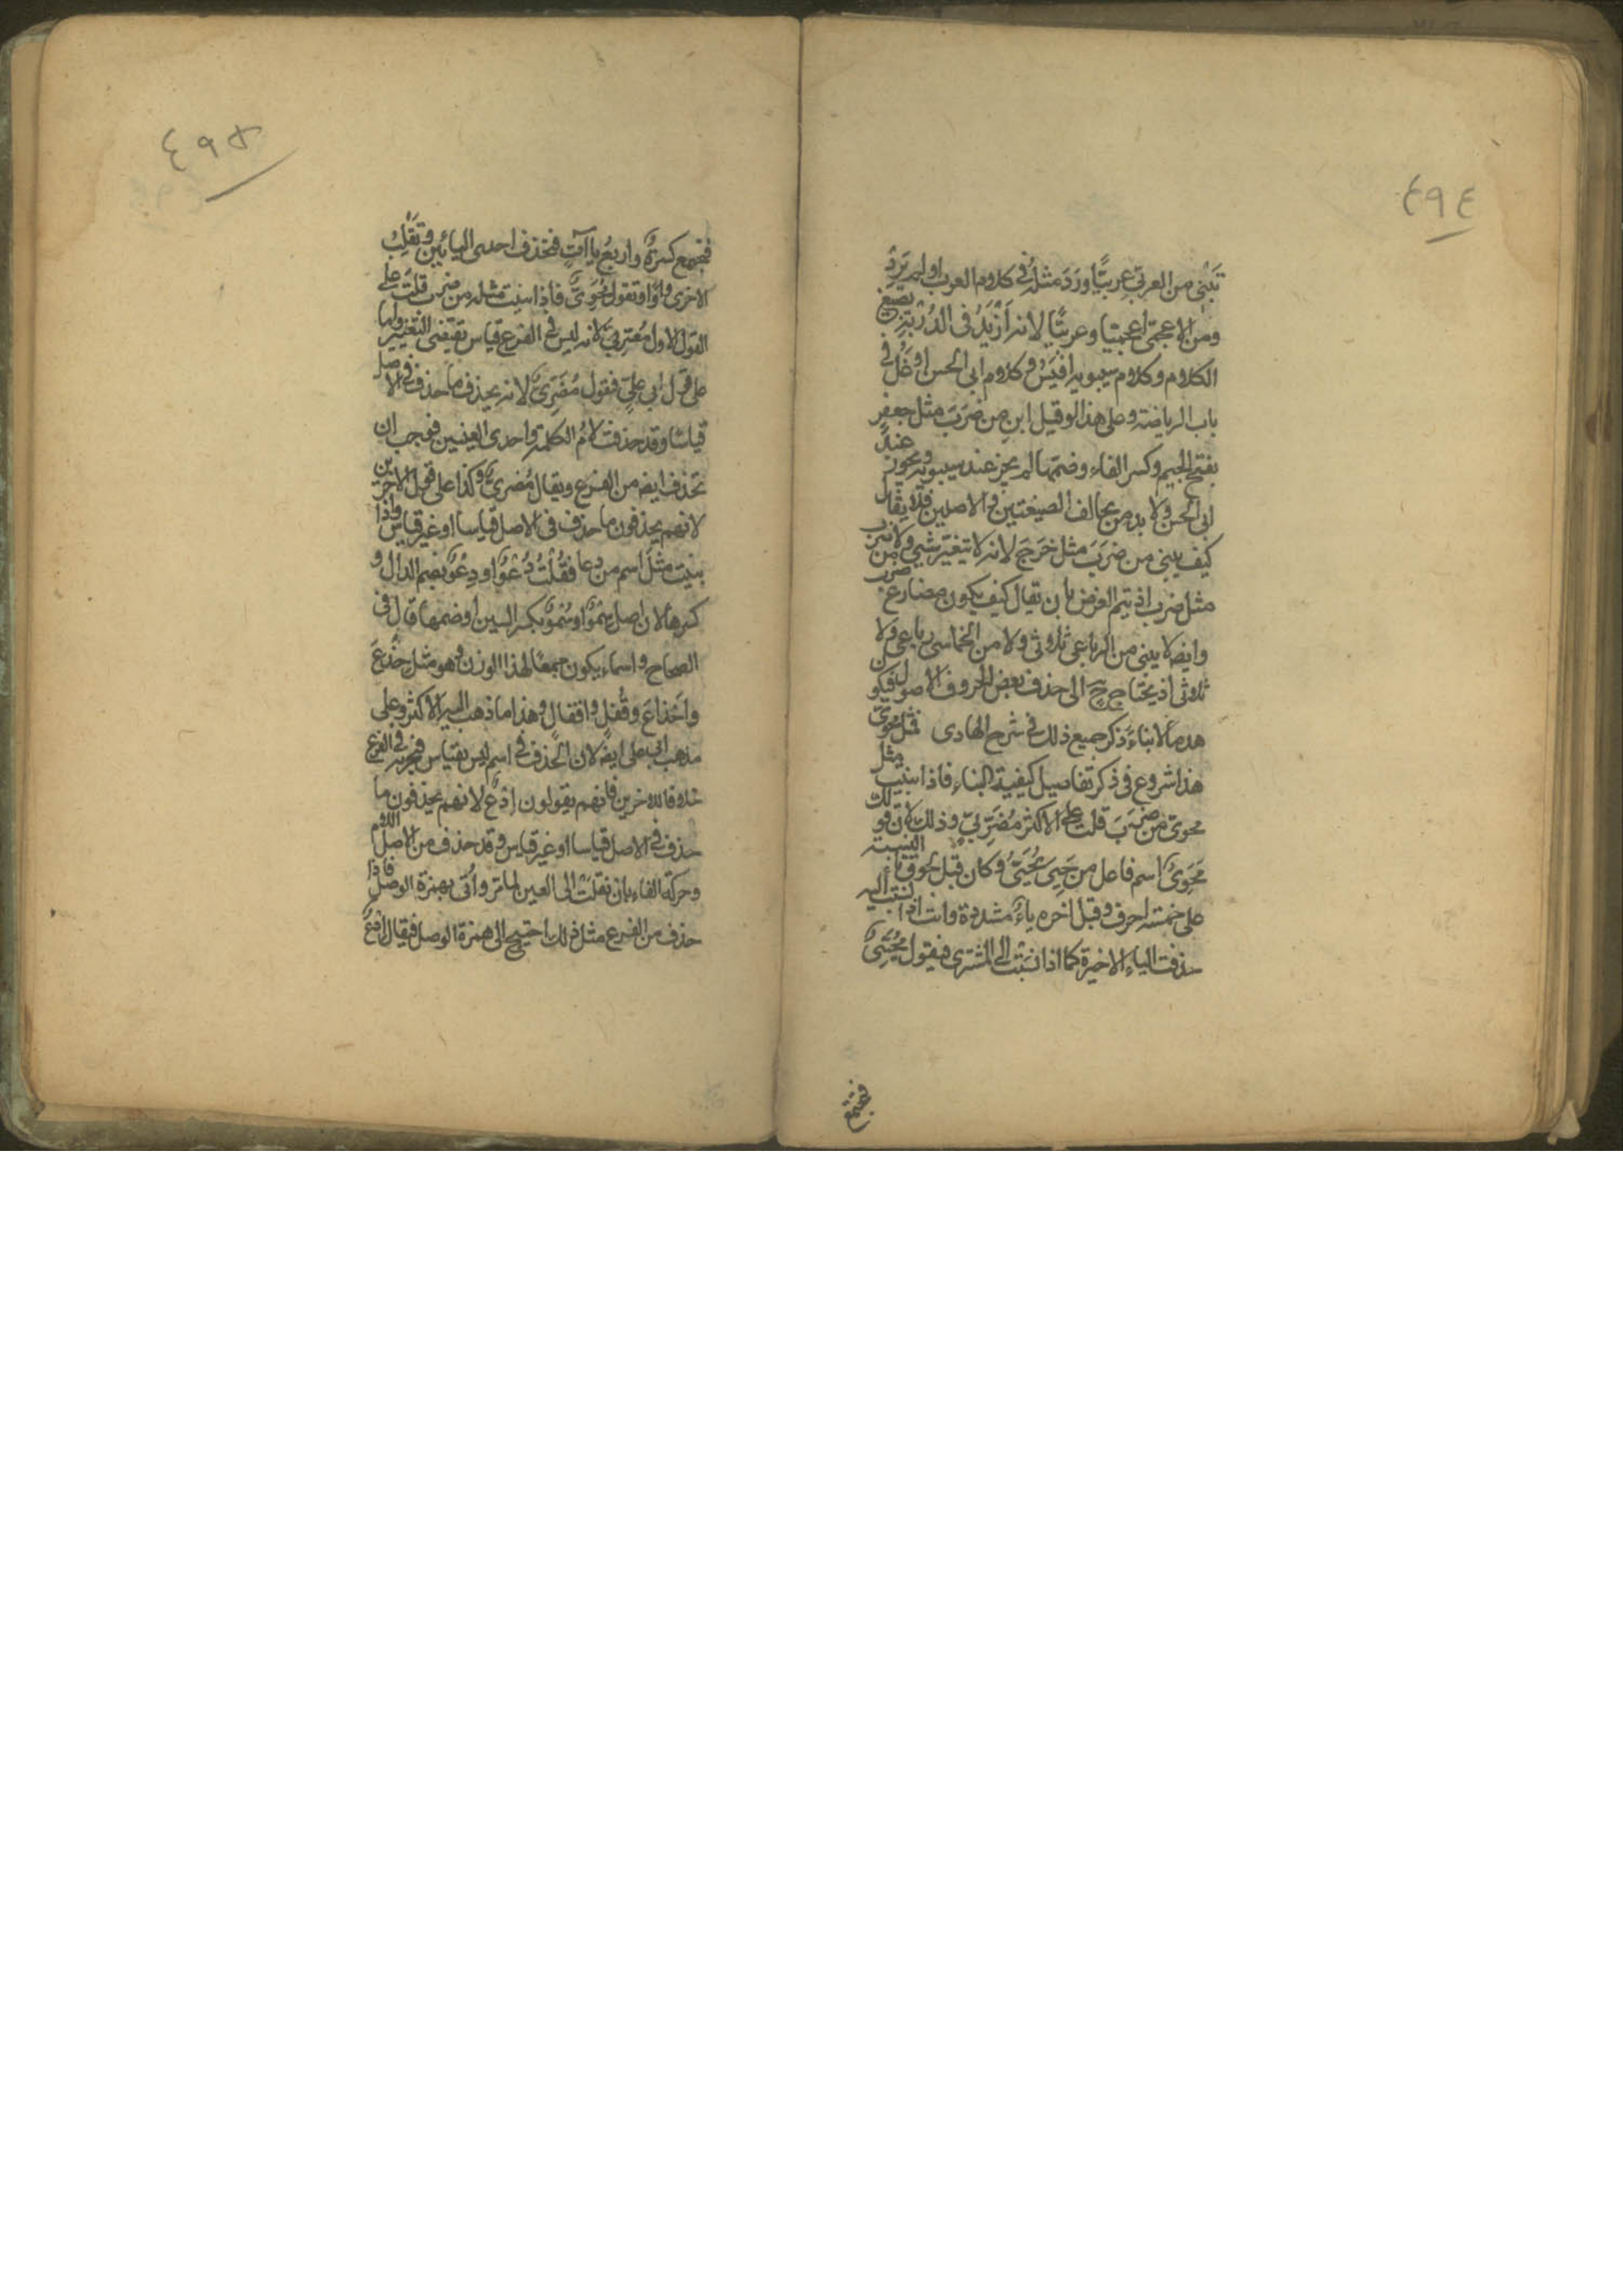 ٤٩٤
تَبْنِىَ من العربىّ عربيًّا وَرَدَ مثلُه فى كلام العرب او لم يَرِدْ
ومن الاعجمىّ اعجميّا وعربيًّا لانه اَزْيَدُ فى الدُّرْبَةِ بصيغ
الكلام وكلام سيبويه اقيَسُ وكلام ابى الحسن اَوْغَلُ فى
باب الرياضة وعلى هذا لو قيل ابنِ من ضَرَبَ مثل جعفر
بفتح الجيم وكسر الفاء وضمّها لم يجز عند سيبويه ويجوز عند
ابى الحسن ولا بد من تخالف الصيغتين فى الاصلين فلا يقال
كيف يبنى من ضَرَبَ مثل خَرَجَ لانه لا تتغيّر شىء ولا من
مثل ضرب اذ يتم الغرض بان يقال كيف يكون مضارع ضرب
وايضا لا يبنى من الرباعى ثلاثى ولا من الخماسى رباعى ولا
ثلاثى اذ يحتاج ح الى حذف بعض الحروف الاصول فيكون
هدما لا بناءً ذكر جميع ذلك فى شرح الهادى فمثل محوىّ
هذا شروع فى ذكر تفاصيل كيفية البناء فاذا بنيت مثل
محوىّ من ضَرَبَ قلت على الاكثر مُضَرِّبىّ وذلك لان قولك
مُحَوِىٌّ اسم فاعل من حَيَّى يُحَيِّى وكان قبل لحوق ياء النسبة
على خمسة احرف وقبل اخره ياءٌ مشددة وانت اذا نسبت اليه
حذفت الياء الاخيرة كما اذا نسبت الى المشترى فيقول مُحَيِّىّ
فتجتمع
٤٩٥
فتجمع كسرةٌ واربعُ ياآتٍ فتحذف احدى اليائين وتَقْلِبُ
الاخرى واوًا وتقول مُحَوِىٌّ فاذا بنيت مثله من ضرب قلت على
القول الاول مُضَرِّبىّ لانه ليس فى الفرع قياس تقتضى التغيير واما
على قول ابى علىّ فتقول مُضَرِىٌّ لانه يحذف ما حذف فى الاصل
قياسًا وقد حذفت لامُ الكلمة واحدى العينين فوجب ان
تحذف ايضا من الفرع ويقال مُضَرِىٌّ وكذا على قول الاخرين
لانهم يحذفون ما حذف فى الاصل قياسا او غير قياس واذا
بنيت مثلَ اسم من دعا فقُلْتَ دُعْوٌ او دِعْوٌ بضم الدال و
كسرها لان اصل سِمْوٌ او سُمْوٌ بكسر السين او ضمها قال فى
الصحاح و اسماء يكون جمعًا لهذا الوزن وهو مثل جِذْع
واَجْذاع وقُفْلٍ واقفال وهذا ما ذهب اليه الاكثر وعلى
مذهب ابى على ايضا لان الحذف فى اسم ليس بقياس فيجرى فى الفرع
خلافا للاخرين فانهم يقولون اِدْعٌ لانهم يحذفون ما
حذف فى الاصل قياسا او غير قياس وقد حذف من الاصل اللام
وحركة الفاء بان نقلت الى العين لما مر واُتى بهمزة الوصل فاذا
حذف من الفرع مثل ذلك احتيج الى همزة الوصل فيقال اِدْعٌ